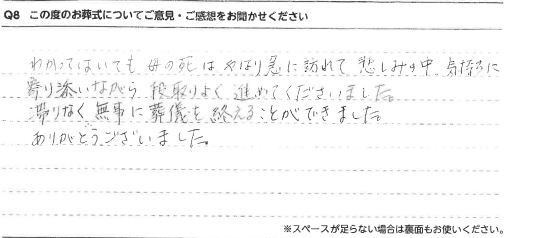 Q8 この度のお葬式についてご意見・ご感想をお聞かせください
わかってはいても 母の死は やはり急に訪れて 悲しみの中、気持ちに
寄り添いながら 段取りよく 進めてくださいました。
滞りなく 無事に 葬儀を 終えることができました。
ありがとうございました。
※スペースが足らない場合は裏面もお使いください。